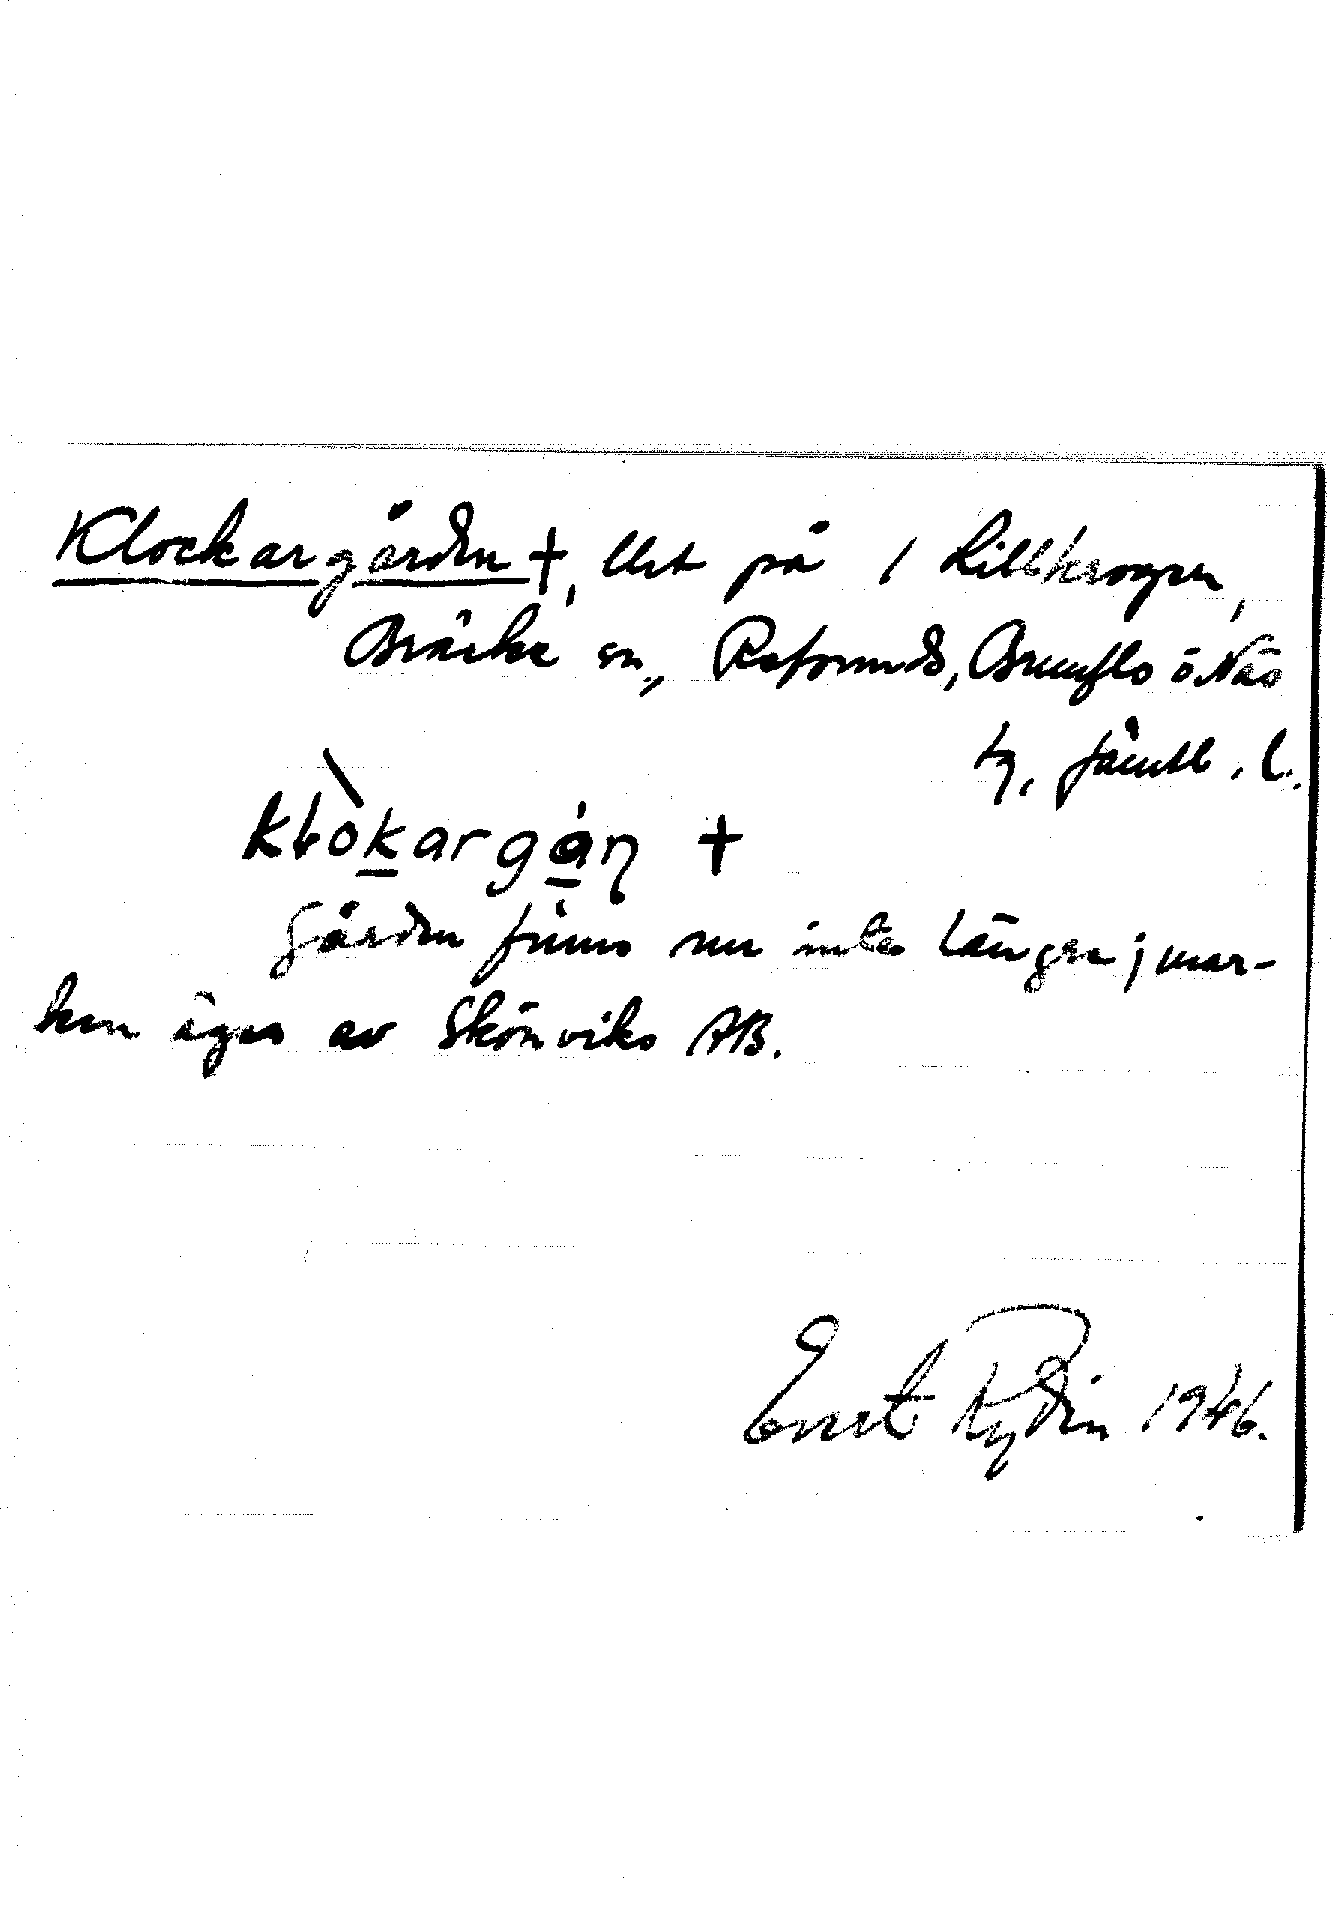 Klockargården †, Ust på 1 Lillkrogen,
Bräcke sn., Refsunds, Brunflo o Näs
tg, Jämtl. l.
klòkargán †
Gården finns nu inte längre; mar-
ken äges av Skönviks AB.
Ernst Rydin 1946.